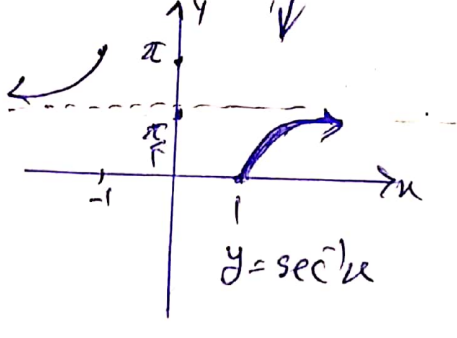 y
π
π
۲
-1
1
x
y = sec⁻¹x